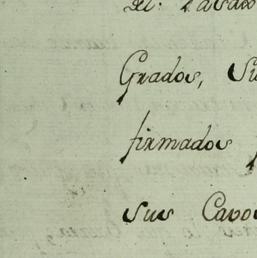 Grados, Su
firmados
sus Cavo